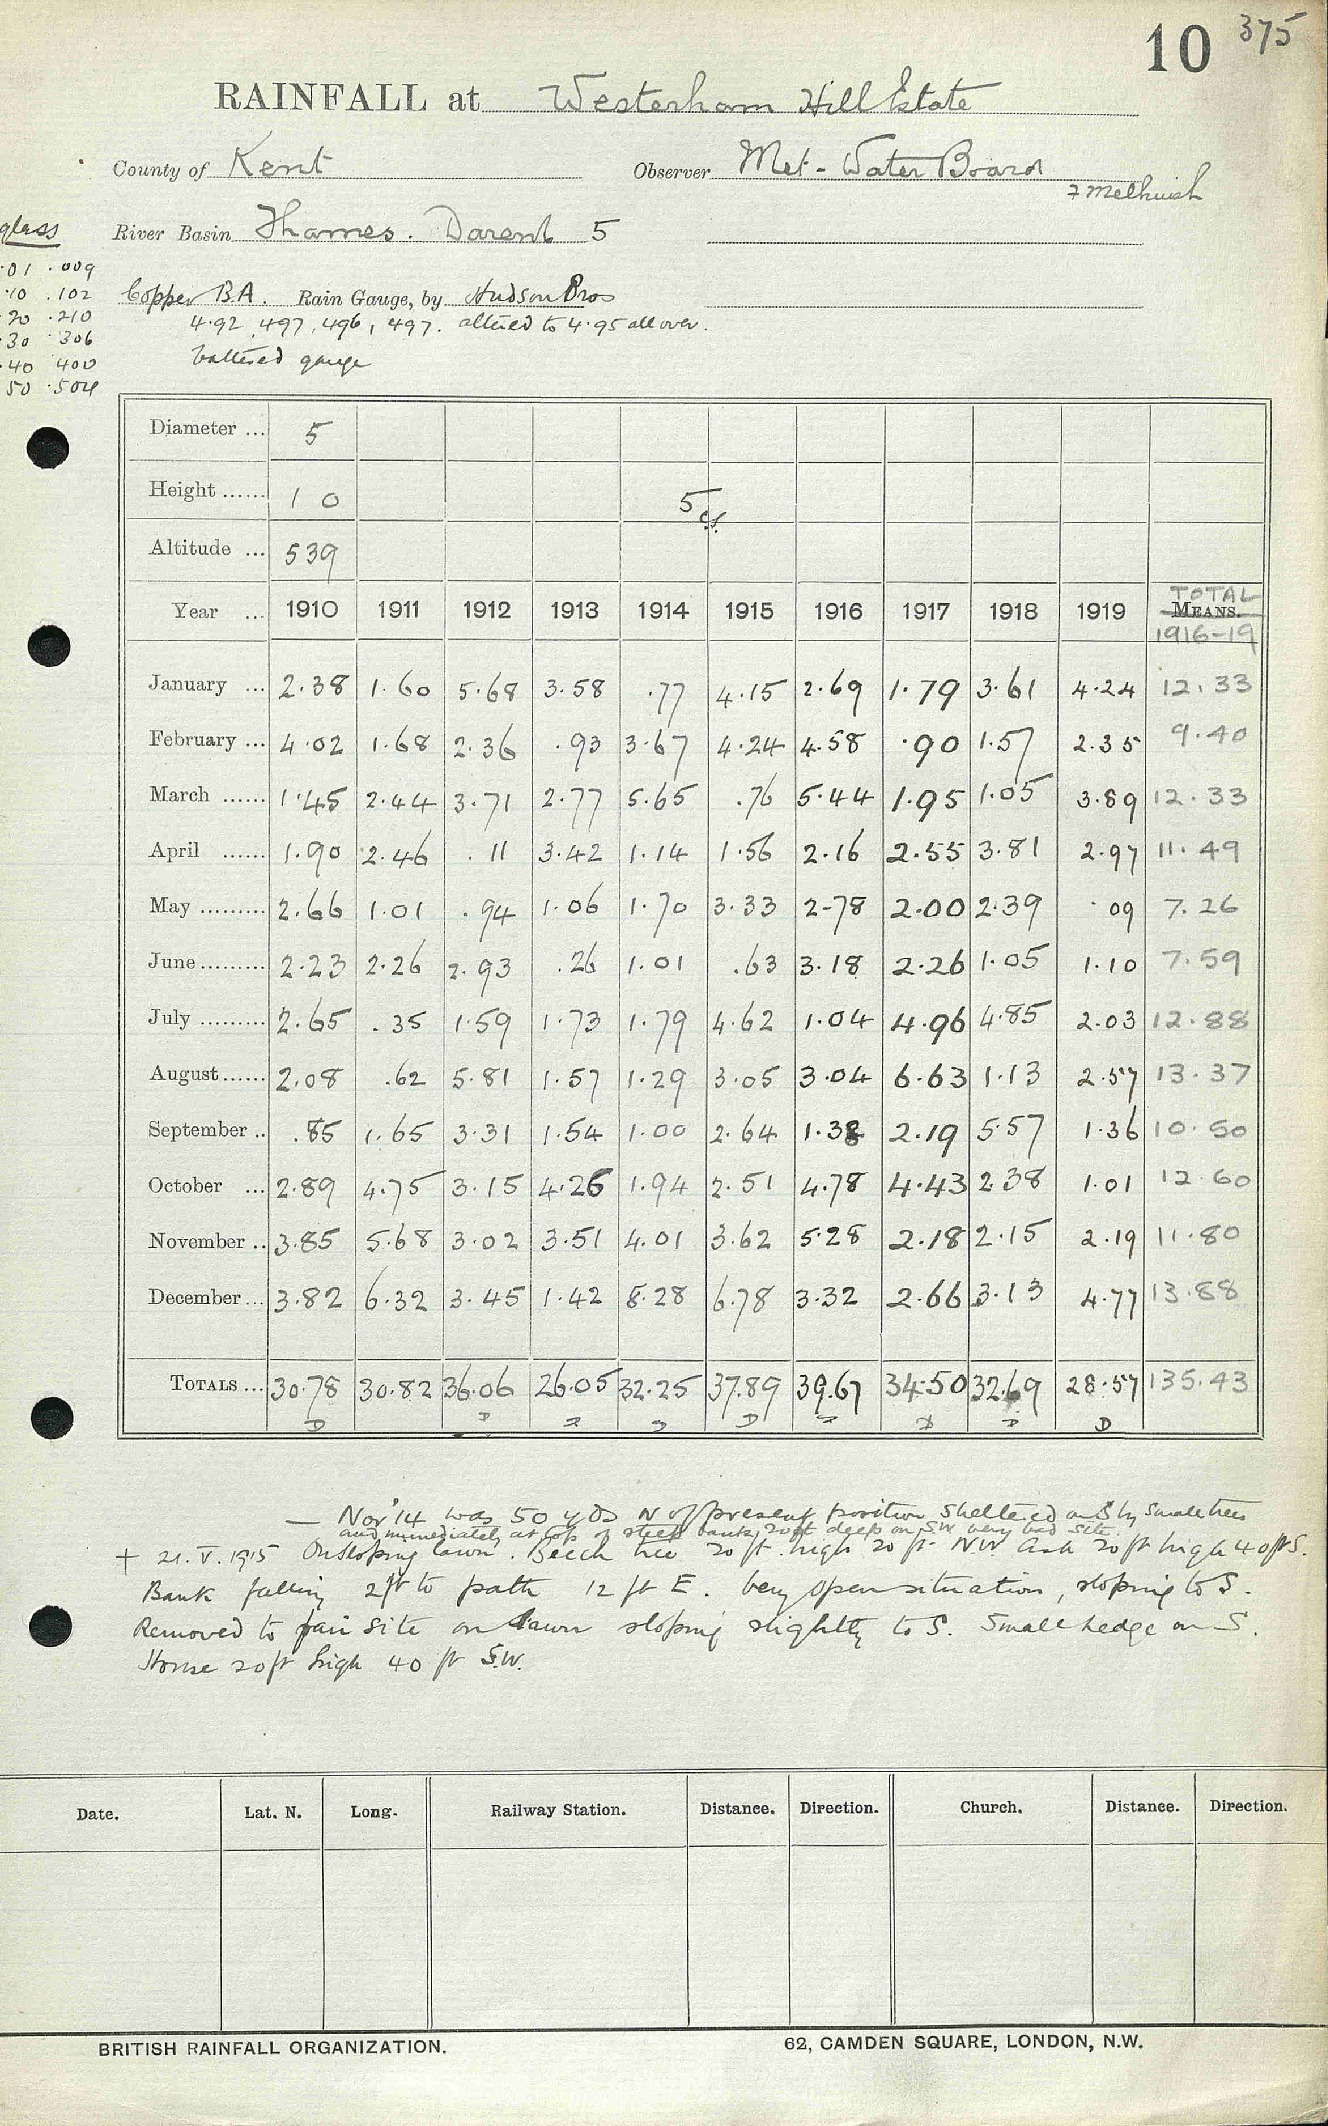 10 375
RAINFALL at Westerham Hill Estate
County of Kent Observer Met. Water Board
F Melhuish
River Basin Thames. Darent 5
glass
.01 .009
.10 .102
.20 .210
.30 306
.40 400
50 .504
Copper BA. Rain Gauge, by Hudson Bros
4.92, 497, 496, 497. altered to 4.95 all over.
battered gauge
Diameter ... 5
Height ...... 1 0 5
Altitude ... 539
Year ... 1910 1911 1912 1913 1914 1915 1916 1917 1918 1919 TOTAL MEANS. 1916-19
January ... 2.38 1.60 5.68 3.58 .77 4.15 2.69 1.79 3.61 4.24 12.33
February ... 4.02 1.68 2.36 .93 3.67 4.24 4.58 .90 1.57 2.35 9.40
March ...... 1.45 2.44 3.71 2.77 5.65 .76 5.44 1.95 1.05 3.89 12.33
April ...... 1.90 2.46 .11 3.42 1.14 1.56 2.16 2.55 3.81 2.97 11.49
May ......... 2.66 1.01 .94 1.06 1.70 3.33 2.78 2.00 2.39 .09 7.26
June ......... 2.23 2.26 2.93 .26 1.01 .63 3.18 2.26 1.05 1.10 7.59
July ......... 2.65 .35 1.59 1.73 1.79 4.62 1.04 4.96 4.85 2.03 12.88
August ...... 2.08 .62 5.81 1.57 1.29 3.05 3.04 6.63 1.13 2.57 13.37
September .. .85 1.65 3.31 1.54 1.00 2.64 1.38 2.19 5.57 1.36 10.50
October ... 2.89 4.75 3.15 4.26 1.94 2.51 4.78 4.43 2.38 1.01 12.60
November .. 3.85 5.68 3.02 3.51 4.01 3.62 5.28 2.18 2.15 2.19 11.80
December ... 3.82 6.32 3.45 1.42 8.28 6.78 3.32 2.66 3.13 4.77 13.88
TOTALS ... 30.78 30.82 36.06 26.05 32.25 37.89 39.67 34.50 32.69 28.57 135.43
— Nov '14 was 50 yds N of present position sheltered on S by small trees
and immediately at top of steep bank, 20ft deep on S.W. very bad site.
+ 21.V.1915 On sloping lawn. Beech tree 20 ft. high 20 ft. NW Ash 20 ft high 40 ft S.
Bank falling 2 ft to path 12 ft E. very open situation, sloping to S.
Removed to fair site on lawn sloping slightly to S. Small hedge on S.
House 20 ft high 40 ft S.W.
Date. Lat. N. Long. Railway Station. Distance. Direction. Church. Distance. Direction.
BRITISH RAINFALL ORGANIZATION. 62, CAMDEN SQUARE, LONDON, N.W.